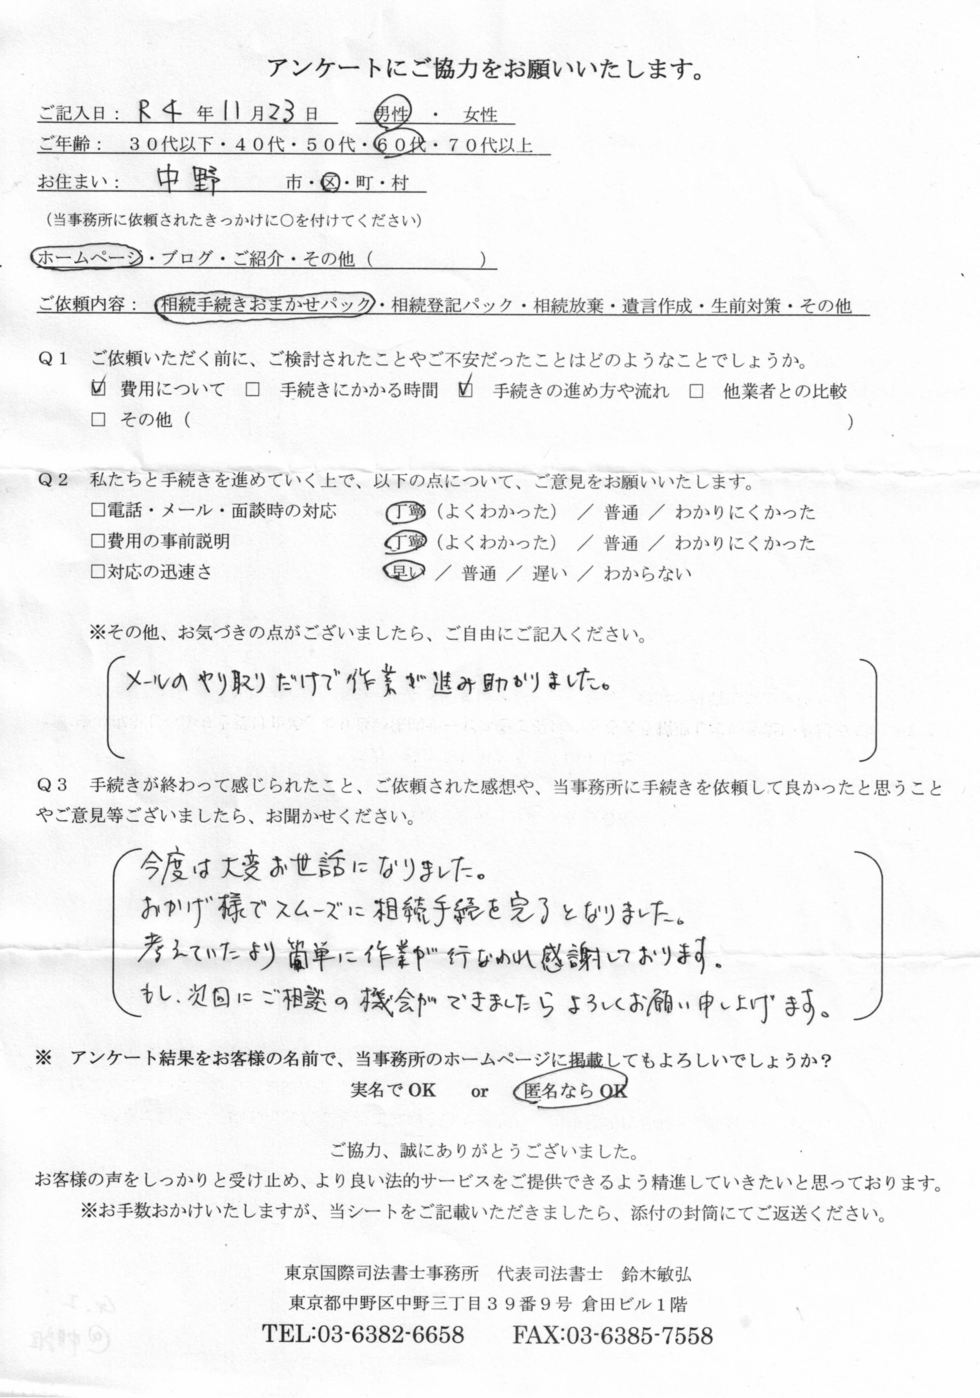 アンケートにご協力をお願いいたします。
ご記入日： R4 年 11 月 23 日　男性 ・ 女性
ご年齢：　３０代以下・４０代・５０代・６０代・７０代以上
お住まい：　中野　市・区・町・村
（当事務所に依頼されたきっかけに〇を付けてください）
ホームページ・ブログ・ご紹介・その他（　　　　　　）
ご依頼内容：　相続手続きおまかせパック・相続登記パック・相続放棄・遺言作成・生前対策・その他
Ｑ１　ご依頼いただく前に、ご検討されたことやご不安だったことはどのようなことでしょうか。
☑ 費用について　□ 手続きにかかる時間　☑ 手続きの進め方や流れ　□ 他業者との比較
□ その他（　　　　　　　　　　）
Ｑ２　私たちと手続きを進めていく上で、以下の点について、ご意見をお願いいたします。
□電話・メール・面談時の対応　丁寧（よくわかった） ／ 普通 ／ わかりにくかった
□費用の事前説明　丁寧（よくわかった） ／ 普通 ／ わかりにくかった
□対応の迅速さ　早い ／ 普通 ／ 遅い ／ わからない
※その他、お気づきの点がございましたら、ご自由にご記入ください。
メールのやり取りだけで作業が進み助かりました。
Ｑ３　手続きが終わって感じられたこと、ご依頼された感想や、当事務所に手続きを依頼して良かったと思うこと
やご意見等ございましたら、お聞かせください。
今度は大変お世話になりました。
おかげ様でスムーズに相続手続を完了となりました。
考えていたより簡単に作業が行なわれ感謝しております。
もし、次回にご相談の機会ができましたらよろしくお願い申し上げます。
※　アンケート結果をお客様の名前で、当事務所のホームページに掲載してもよろしいでしょうか？
実名でOK　or　匿名ならOK
ご協力、誠にありがとうございました。
お客様の声をしっかりと受け止め、より良い法的サービスをご提供できるよう精進していきたいと思っております。
※お手数おかけいたしますが、当シートをご記載いただきましたら、添付の封筒にてご返送ください。
東京国際司法書士事務所　代表司法書士　鈴木敏弘
東京都中野区中野三丁目３９番９号 倉田ビル１階
TEL:03-6382-6658　FAX:03-6385-7558